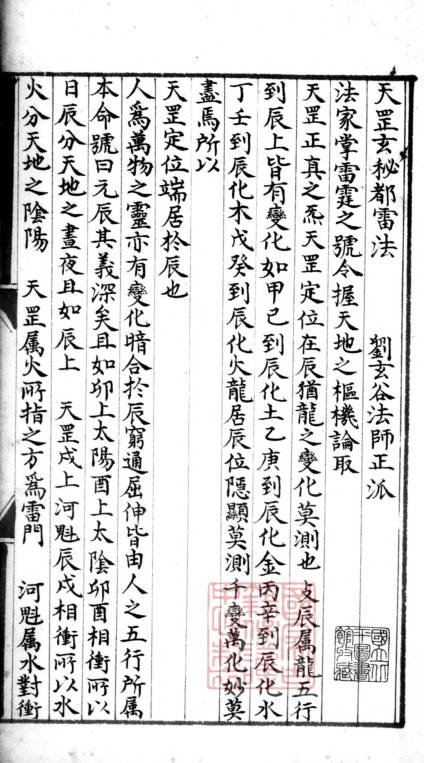 天罡玄秘都雷法　　劉玄谷法師正派
法家掌雷霆之號令握天地之樞機論取
天罡正真之炁天罡定位在辰猶龍之變化莫測也支辰属龍五行
到辰上皆有變化如甲己到辰化土乙庚到辰化金丙辛到辰化水
丁壬到辰化木戊癸到辰化火龍居辰位隱顯莫測千變萬化妙莫
盡焉所以
天罡定位端居於辰也
人爲萬物之靈亦有變化暗合於辰窮通屈伸皆由人之五行所属
本命號曰元辰其義深矣且如卯上太陽酉上太陰卯酉相衝所以
日辰分天地之晝夜且如辰上　天罡戌上河魁辰戌相衝所以水
火分天地之陰陽　天罡属火所指之方爲雷門　河魁属水對衝
國立北
平圖書
館收藏